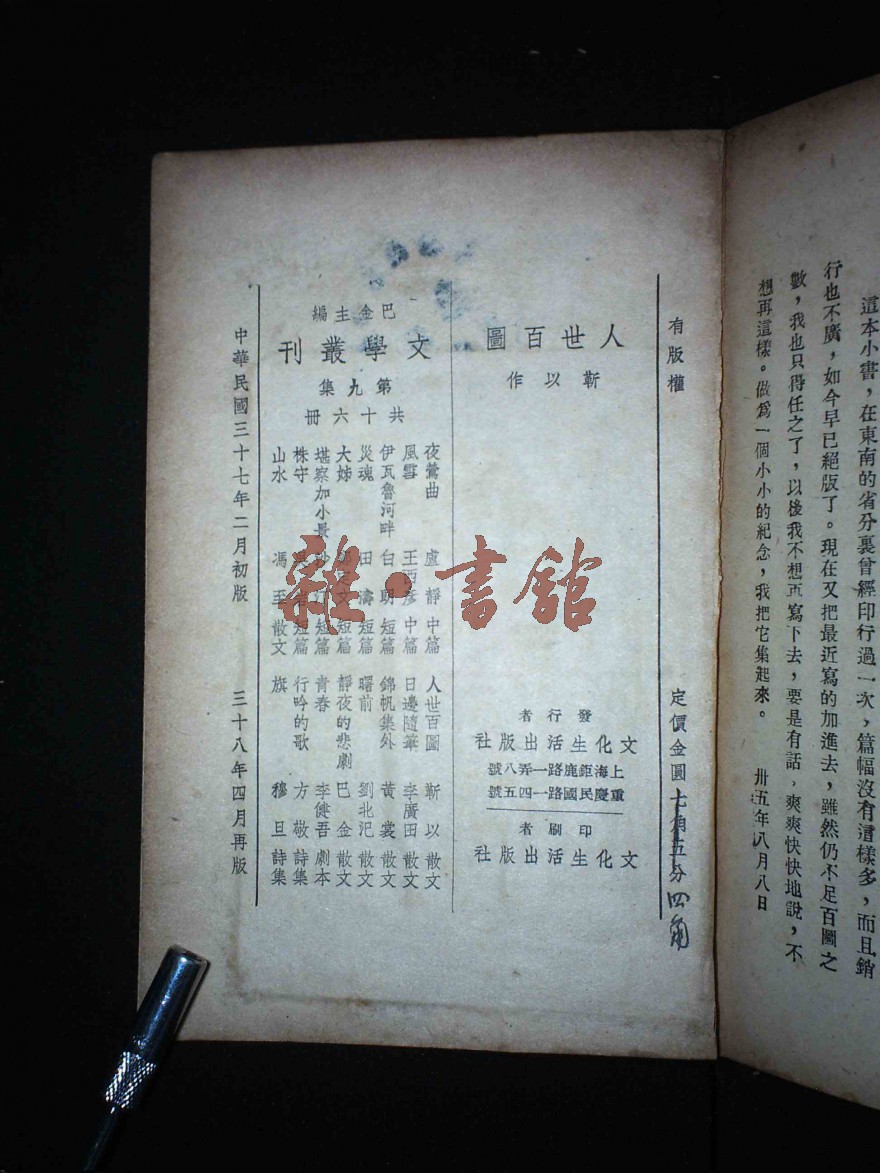 這本小書，在東南的省分裏曾經印行過一次，篇幅沒有這樣多，而且銷
行也不廣，如今早已絕版了。現在又把最近寫的加進去，雖然仍不足百圖之
數，我也只得任之了，以後我不想再寫下去，要是有話，爽爽快快地說，不
想再這樣。做爲一個小小的紀念，我把它集起來。 卅五年八月八日
有版權
定價金圓七角五分
四角
人世百圖
靳以作
發行者
文化生活出版社
上海鉅鹿路一弄八號
重慶民國路一四五號
印刷者
文化生活出版社
巴金主編
文學叢刊
第九集
共十六冊
夜鶯曲 盧靜 中篇
風雪 王西彥 中篇
伊瓦魯河畔 白朗 短篇
災魂 田濤 短篇
大姊 短篇
堪察加小景 短篇
株守 短篇
山水 馮至 散文
人世百圖 靳以 散文
日邊隨筆 李廣田 散文
錦帆集外 黃裳 散文
曙前 劉北汜 散文
靜夜的悲劇 巴金 散文
青春 李健吾 劇本
行吟的歌 方敬 詩集
旗 穆旦 詩集
中華民國三十七年二月初版
三十八年四月再版
雜·書館